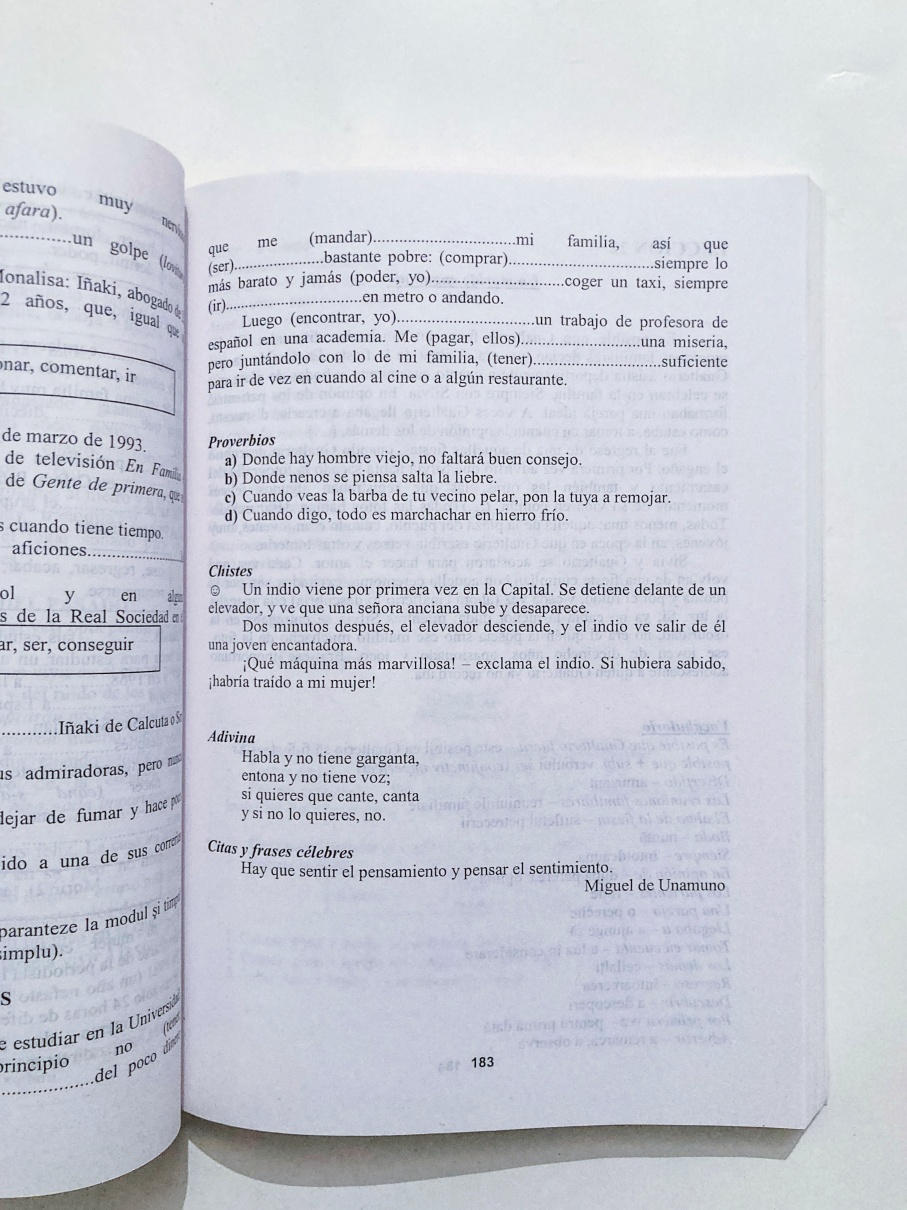 estuvo muy
afara).
..................un golpe
Monalisa: Iñaki, abogado
2 años, que, igual que
onar, comentar, ir
de marzo de 1993.
de televisión En Familia
de Gente de primera, que
s cuando tiene tiempo.
aficiones........................
ol y en
s de la Real Sociedad en
ar, ser, conseguir
............Iñaki de Calcuta o
us admiradoras, pero
dejar de fumar y hace
ido a una de sus
paranteze la modul și
simplu).
S
e estudiar en la
principio no
........................del poco
que me (mandar)................................mi familia, así que
(ser)....................bastante pobre: (comprar)................................siempre lo
más barato y jamás (poder, yo)..............................coger un taxi, siempre
(ir)..............................en metro o andando.
Luego (encontrar, yo)..............................un trabajo de profesora de
español en una academia. Me (pagar, ellos)..........................una miseria,
pero juntándolo con lo de mi familia, (tener)............................suficiente
para ir de vez en cuando al cine o a algún restaurante.
Proverbios
a) Donde hay hombre viejo, no faltará buen consejo.
b) Donde nenos se piensa salta la liebre.
c) Cuando veas la barba de tu vecino pelar, pon la tuya a remojar.
d) Cuando digo, todo es marchachar en hierro frío.
Chistes
☺ Un indio viene por primera vez en la Capital. Se detiene delante de un
elevador, y ve que una señora anciana sube y desaparece.
Dos minutos después, el elevador desciende, y el indio ve salir de él
una joven encantadora.
¡Qué máquina más marvillosa! – exclama el indio. Si hubiera sabido,
¡habría traído a mi mujer!
Adivina
Habla y no tiene garganta,
entona y no tiene voz;
si quieres que cante, canta
y si no lo quieres, no.
Citas y frases célebres
Hay que sentir el pensamiento y pensar el sentimiento.
Miguel de Unamuno
183